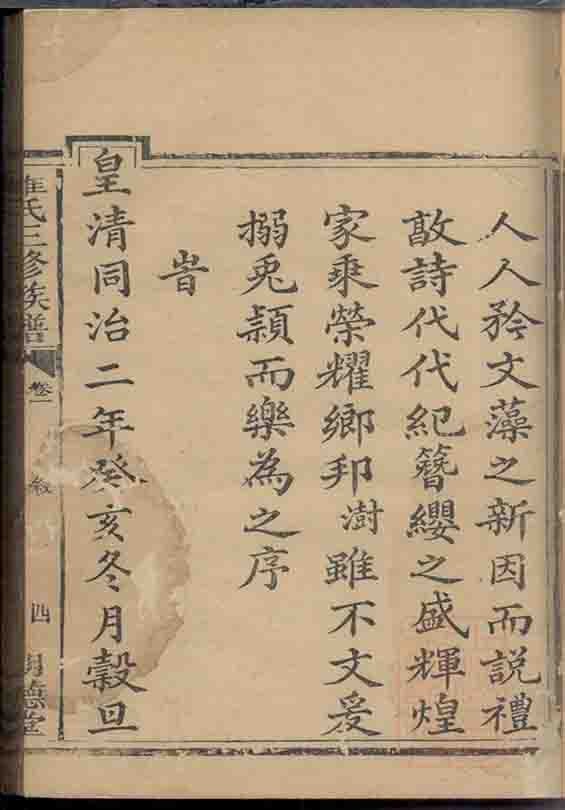 人人矜文藻之新因而説禮
敔詩代代紀簪纓之盛輝煌
家乘榮耀鄉邦澍雖不文爰
搦兎頴而樂為之序
旹
皇清同治二年癸亥冬月穀旦
氏三修族譜 卷一 敘 四 德堂